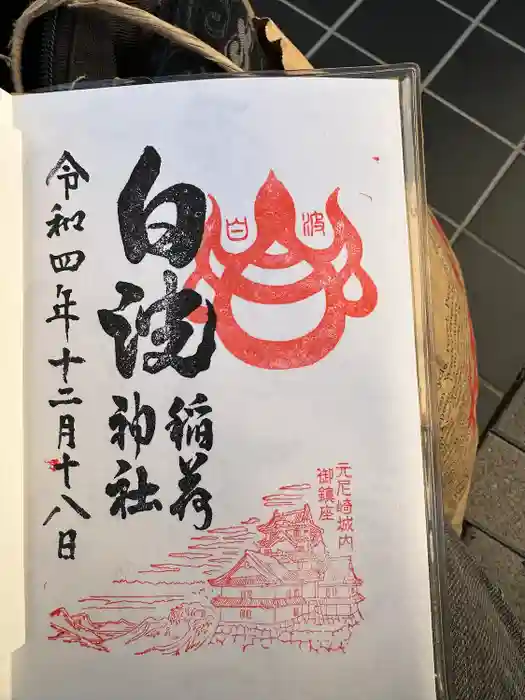 白波
白波
稲荷
神社
元尼崎城内
御鎮座
令和四年十二月十八日